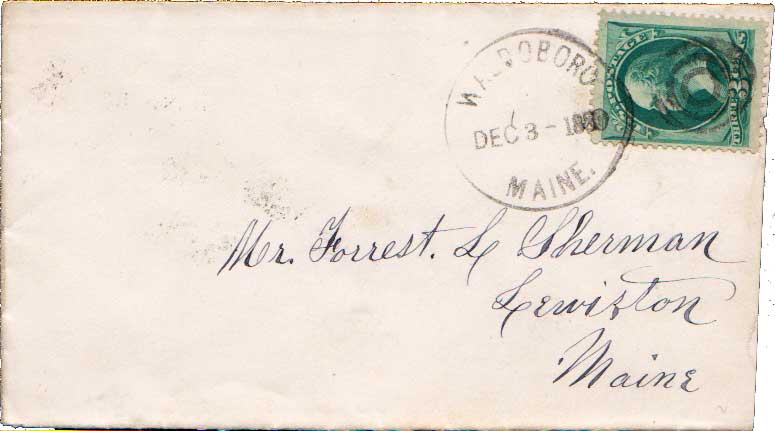 WALDOBORO
DEC 3 -
MAINE.
POSTAGE
Mr. Forrest. L Sherman
Lewiston
Maine